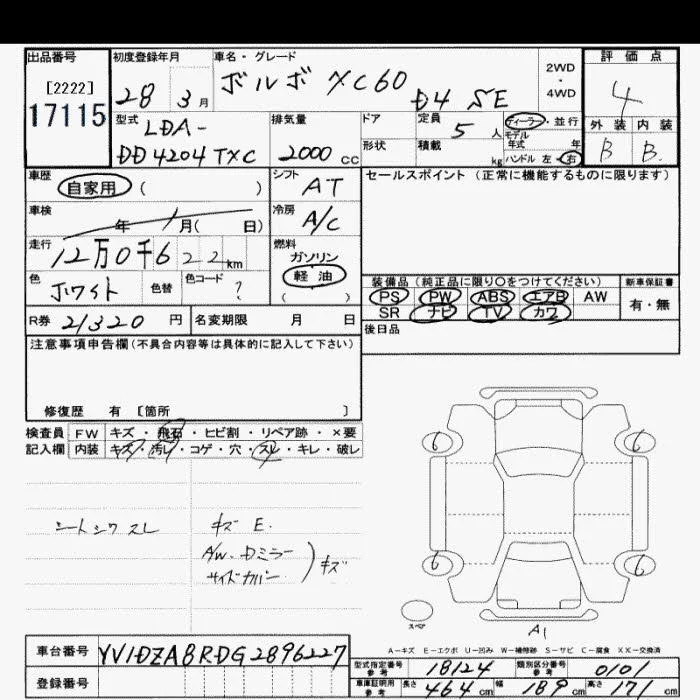 出品番号 初度登録年月 車名・グレード 2WD・4WD 評価点
[2222]
17115
28 3月
ボルボ XC60
D4 SE
4
型式 排気量 ドア 定員 5人 ディーラー・並行
LDA-
DD4204TXC
2000 cc
形状 積載 kg
モデル年式 年
ハンドル 左・右
外装 内装
B B
車歴 自家用 ( )
シフト AT
セールスポイント (正常に機能するものに限ります)
車検 年 月( 日)
冷房 A/C
走行 12万0千622km
燃料 ガソリン
軽油
( )
色 ホワイト 色替 色コード ?
装備品 (純正品に限り○をつけてください) 新車保証書
PS PW ABS エアB AW 有・無
SR ナビ TV カワ
R券 21320 円 名変期限 月 日
後日品
注意事項申告欄(不具合内容等は具体的に記入して下さい)
修復歴 有 [箇所 ]
検査員 FW キズ・飛石・ヒビ割・リペア跡・×要
記入欄 内装 キズ・汚レ・コゲ・穴・スレ・キレ・破レ
シートシワ スレ
キズ E.
A/W. Dミラー
サイドカバー
キズ
6 6
6 6
スペア
A1
A-キズ E-エクボ U-凹み W-補修跡 S-サビ C-腐食 XX-交換済
車台番号 YV1DZA8RDG2896227
登録番号
型式指定番号 参考 18124 類別区分番号 参考 0101
車庫証明用 参考 長さ 464 cm 幅 189 cm 高さ 171 cm